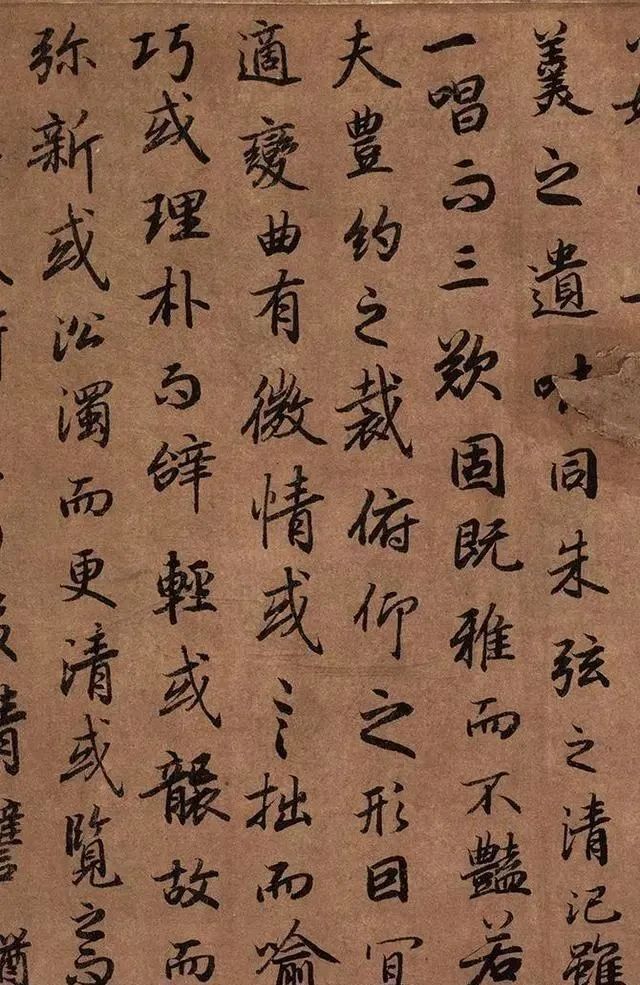 羹之遺味同朱弦之清汜雖
一唱而三歎固既雅而不豔若
夫豊約之裁俯仰之形因宜
適變曲有微情或言拙而喻
巧或理朴而辭輕或襲故而
弥新或沿濁而更清或覽之而